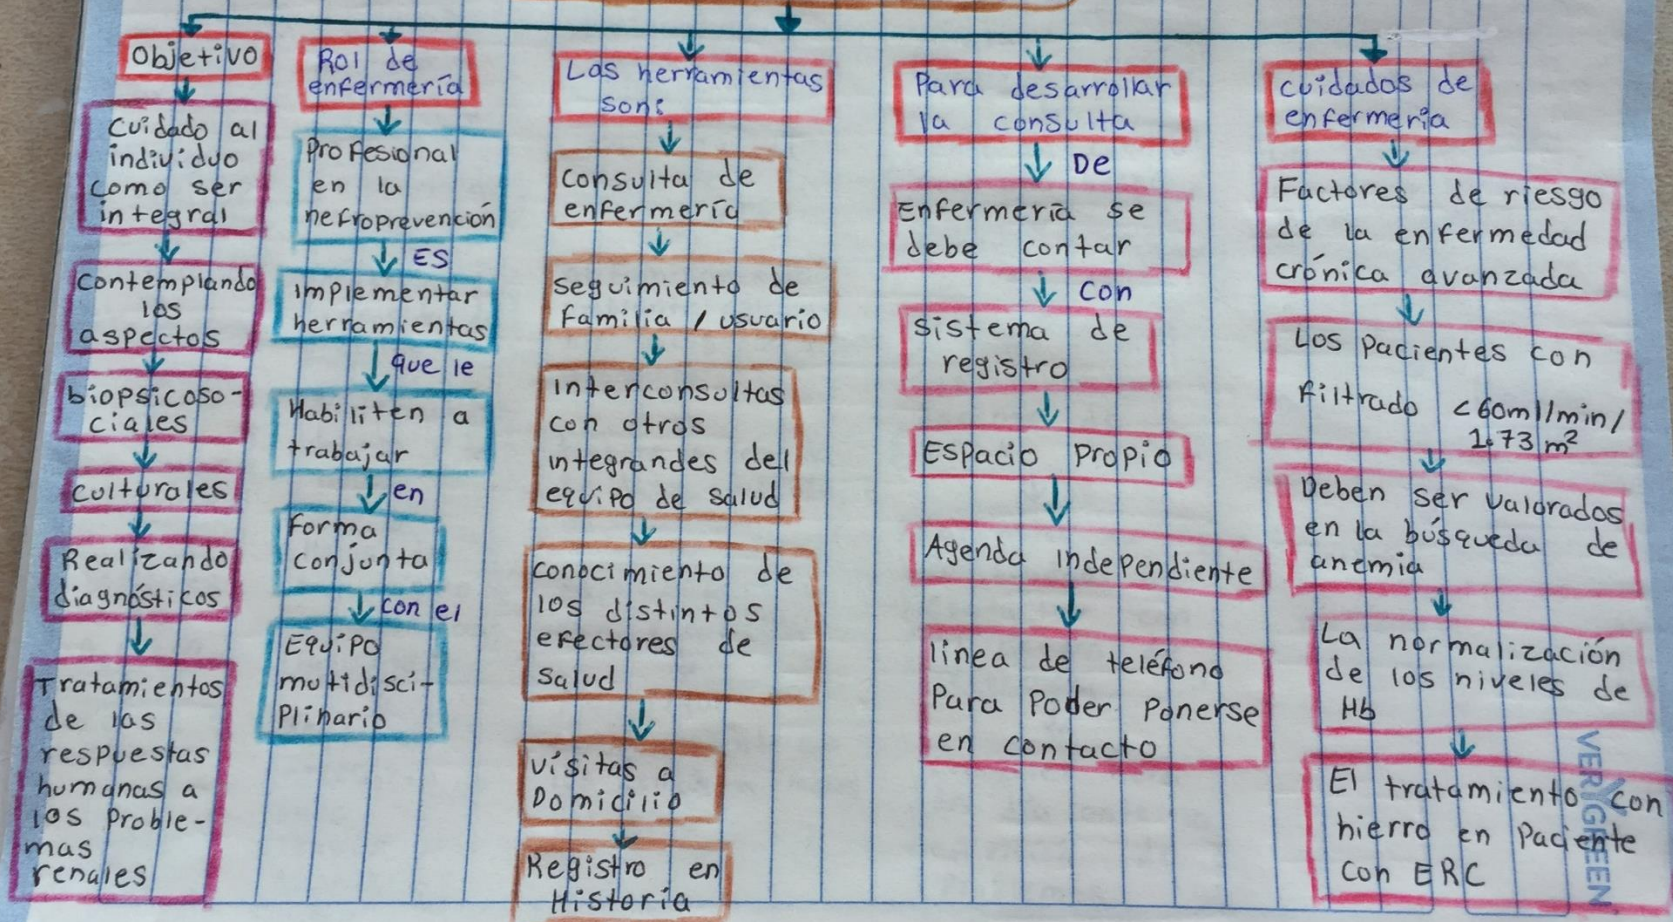 Objetivo
Cuidado al
individuo
como ser
integral
contemplando
los
aspectos
biopsicoso-
ciales
culturales
Realizando
diagnósticos
Tratamientos
de las
respuestas
humanas a
los proble-
mas
renales
Rol de
enfermería
Profesional
en la
nefroprevención
ES
implementar
herramientas
que le
Habiliten a
trabajar
en
forma
conjunta
con el
Equipo
mutidisci-
plinario
Las herramientas
son:
consulta de
enfermería
seguimiento de
familia / usuario
interconsultas
con otros
integrandes del
equipo de salud
conocimiento de
los distintos
efectores de
salud
visitas a
Domicilio
Registro en
Historia
Para desarrollar
la consulta
De
Enfermería se
debe contar
con
sistema de
registro
Espacio propio
Agenda independiente
linea de teléfono
Para Poder Ponerse
en contacto
cuidados de
enfermería
Factores de riesgo
de la enfermedad
crónica avanzada
Los pacientes con
filtrado <60ml/min/
1.73 m²
Deben ser valorados
en la búsqueda de
anemia
La normalización
de los niveles de
Hb
El tratamiento con
hierro en Paciente
con ERC
VERIGREEN